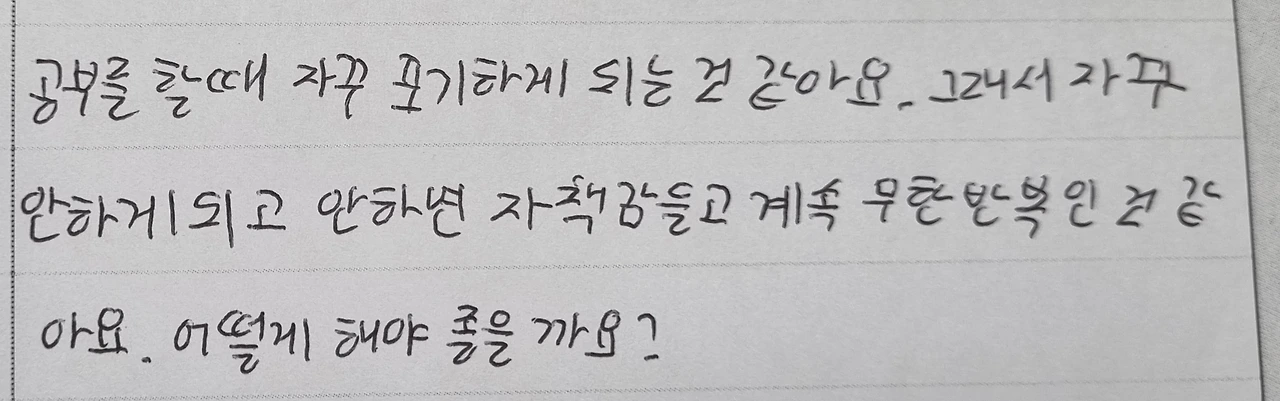 공부를 할때 자꾸 포기하게 되는 것 같아요. 그래서 자꾸
안하게되고 안하면 자책감들고 계속 무한반복인 것 같
아요. 어떻게 해야 좋을 까요?